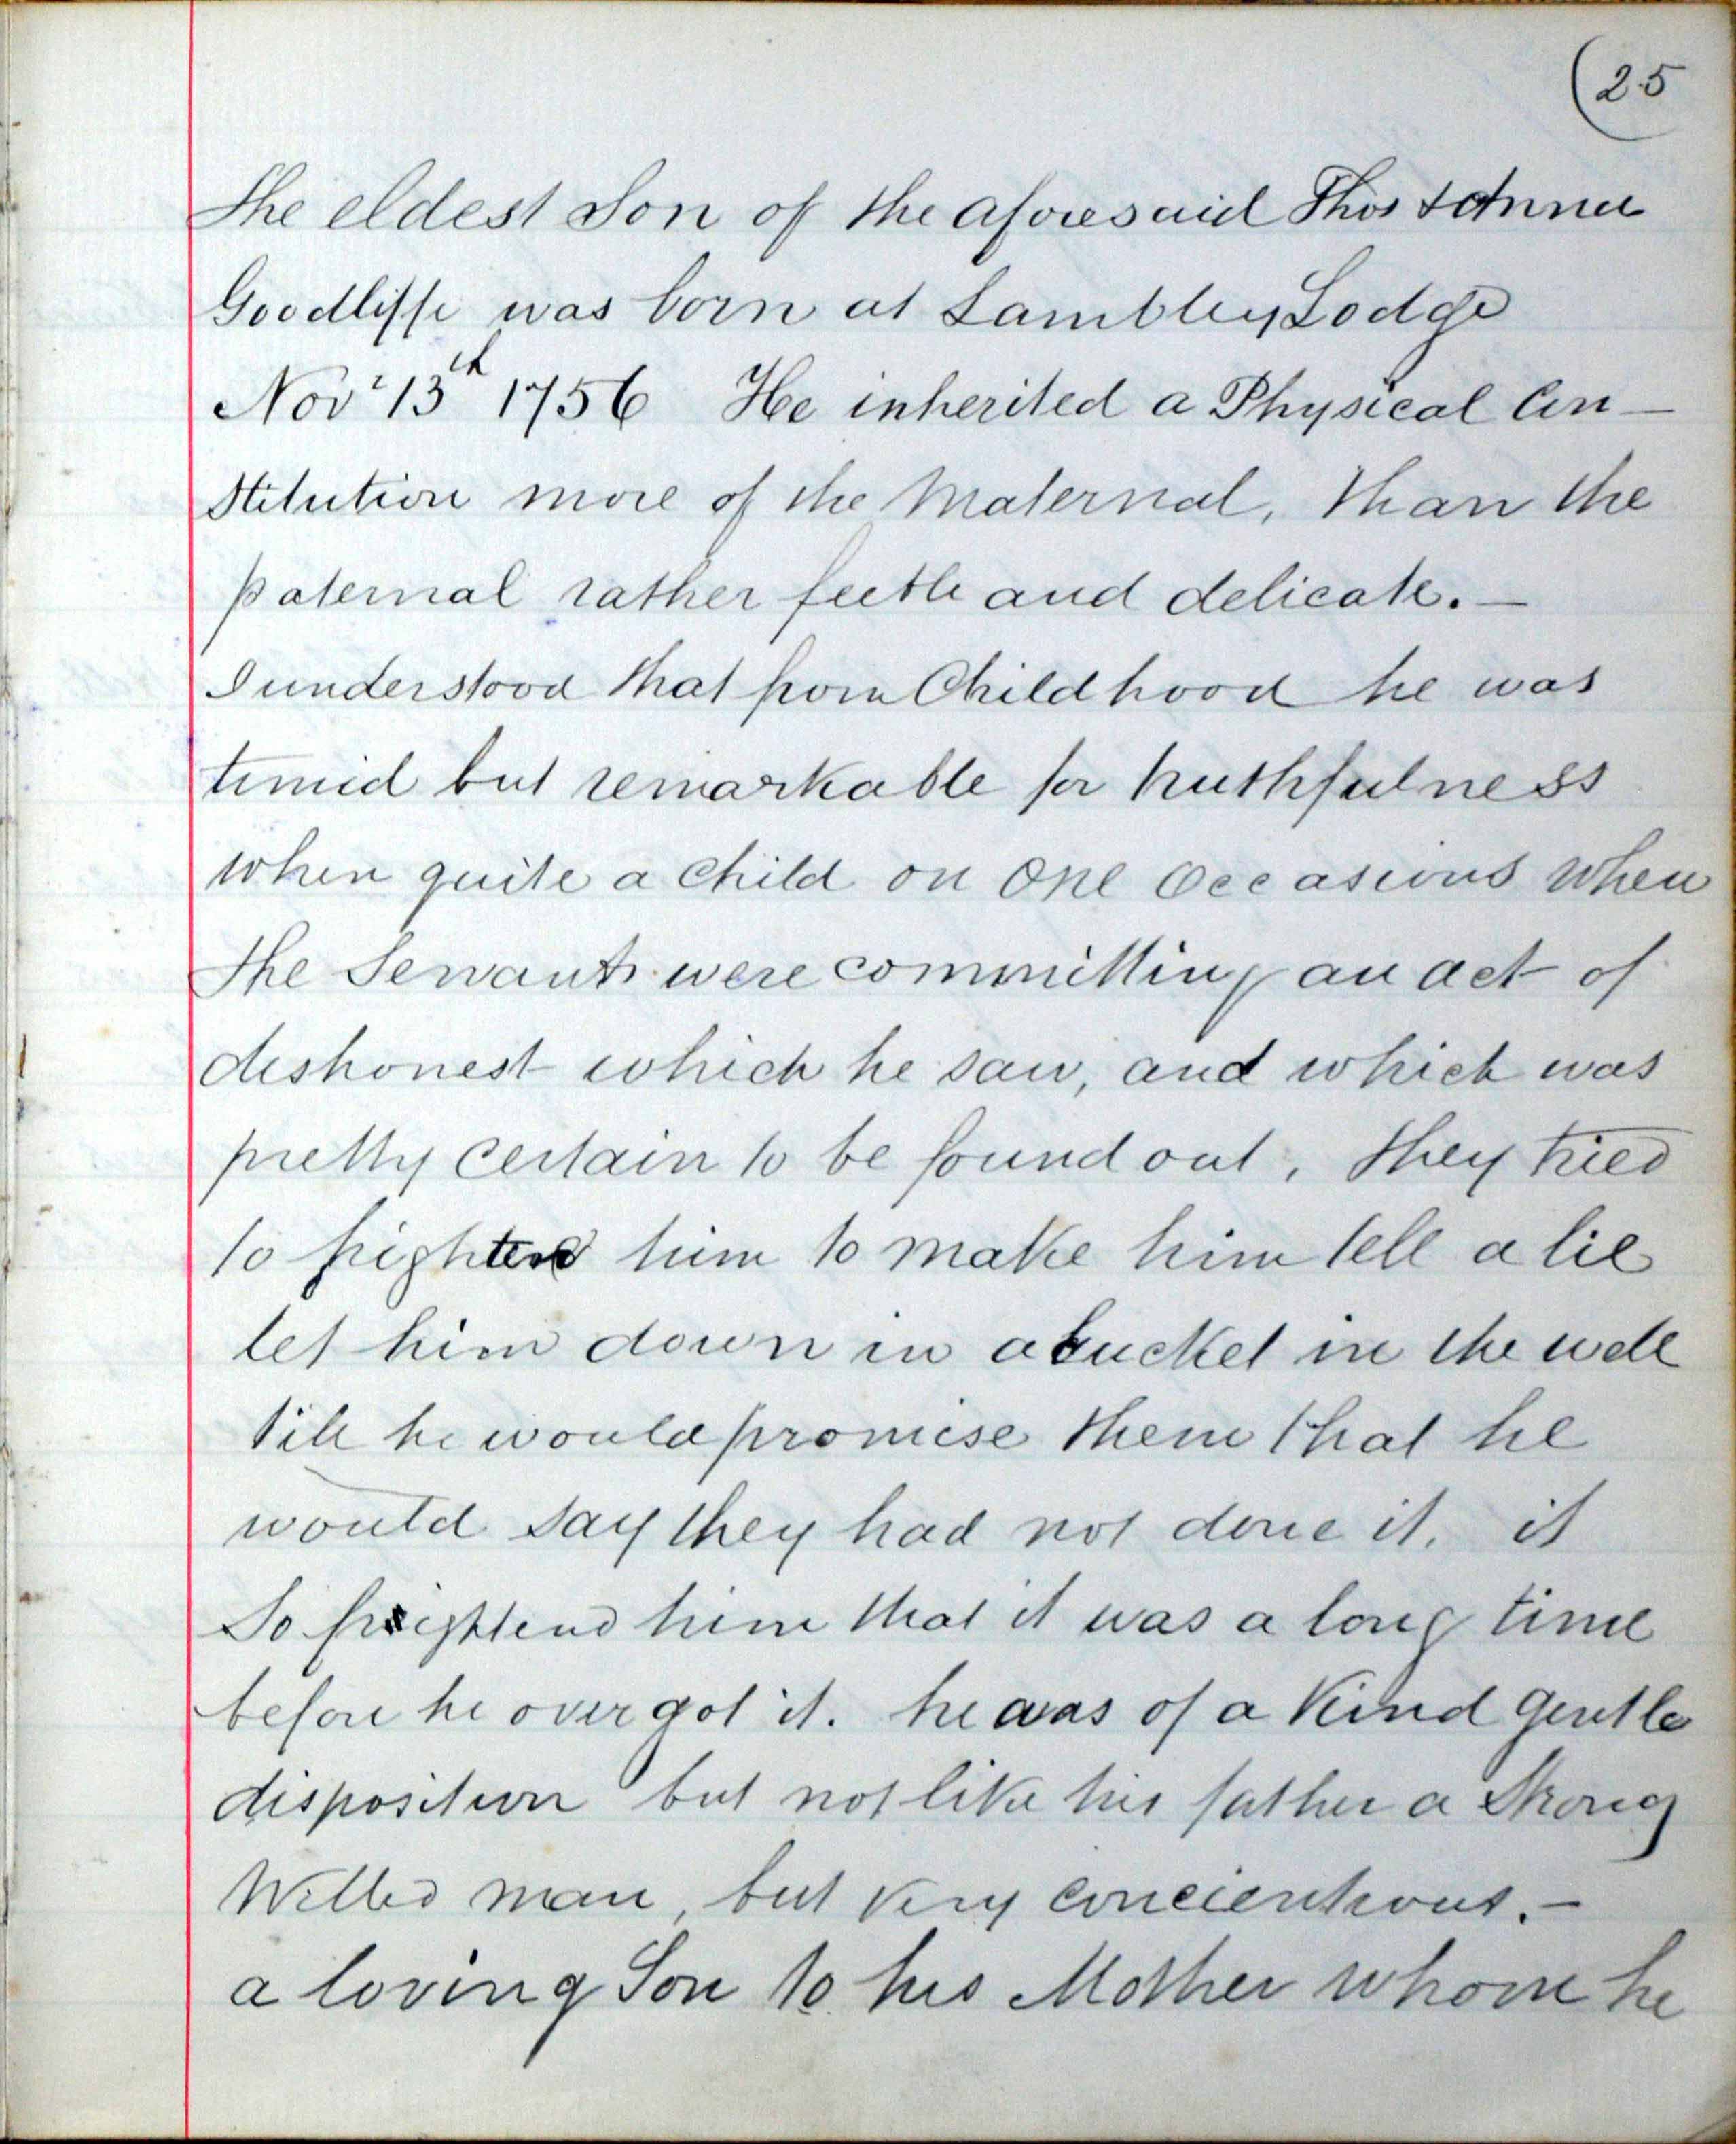 (25
The eldest Son of the aforesaid Thos & Anne
Goodliffe was born at Lambley Lodge
Novr 13th 1756 He inherited a Physical Con-
stitution more of the Maternal, than the
paternal rather feeble and delicate. —
I understood that from Childhood he was
timid but remarkable for truthfulness
when quite a child on one occasions when
the Servants were committing an act of
dishonest which he saw, and which was
pretty certain to be found out, they tried
to frighten him to make him tell a lie
let him down in a bucket in the well
till he would promise them that he
would say they had not done it. it
So frightend him that it was a long time
before he over got it. he was of a Kind gentle
disposition but not like his father a Strong
Willed man, but very concientious. —
a loving Son to his Mother whom he